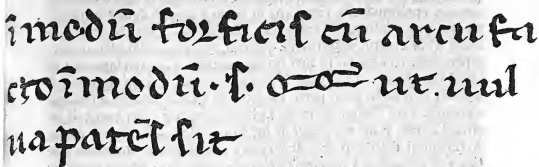 ī modū forficis cū arcu fa
cto ī modū · s · ut. uul
ua patēs sit